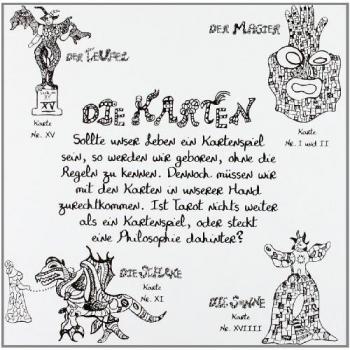 DER MAGIER
DER TEUFEL
XV
Karte
Nr. XV
Karte
Nr. I und II
DIE KARTEN
Sollte unser Leben ein Kartenspiel
sein, so werden wir geboren, ohne die
Regeln zu kennen. Dennoch müssen wir
mit den Karten in unserer Hand
zurechtkommen. Ist Tarot nichts weiter
als ein Kartenspiel, oder steckt
eine Philosophie dahinter?
DIE STÄRKE
Karte
Nr. XI
DIE SONNE
Karte
Nr. XVIIII